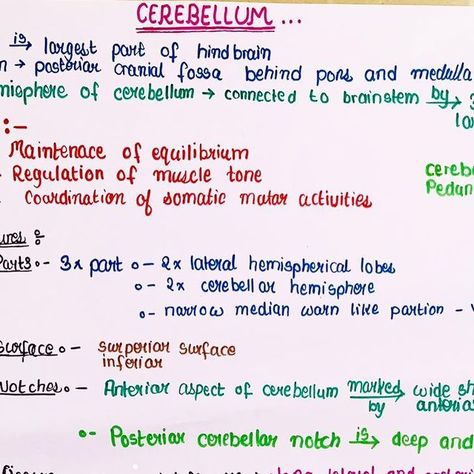 CEREBELLUM ...
is → largest part of hindbrain
→ posteriar cranial fossa behind pons and medulla
misphere of cerebellum → connected to brainstem by → 3
la
:-
Maintenace of equilibrium
Regulation of muscle tone
Coardination of somatic matar activities
cereb
Pedan
ures :-
Parts :- 3x part :- 2x lateral hemispherical lobes
:- 2x cerebellar hemisphere
:- narrow median warn like partion -
Surface :- surperiar surface
inferiar
Notches :- Anteriar aspect of cerebellum marked by → wide sh
anteria
:- Posteriar cerebellar notch is → deep and